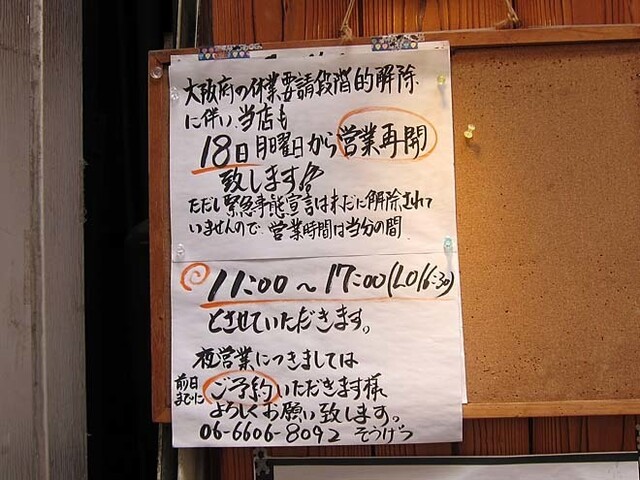 大阪府の休業要請段階的解除
に伴い、当店も
18日月曜日から営業再開
致します!!
ただし緊急事態宣言は未だに解除されて
いませんので、営業時間は当分の間
11:00〜17:00(LO16:30)
とさせていただきます。
夜営業につきましては
前日までにご予約いただきます様
よろしくお願い致します。
06-6606-8092 そうげつ